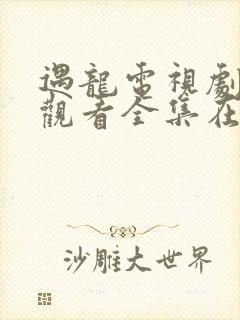 遇龍電視劇
觀看全集在
沙雕大世界